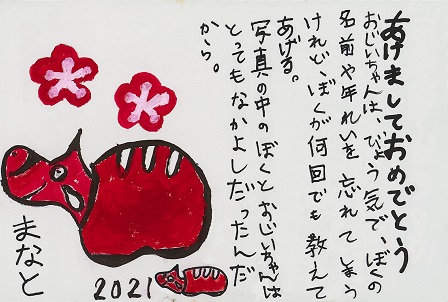 あけましておめでとう
おじいちゃんは、びょう気で、ぼくの
名前や年れいを忘れてしまう
けれど、ぼくが何回でも教えて
あげる。
写真の中のぼくとおじいちゃんは
とってもなかよしだったんだ
から。
まなと
2021